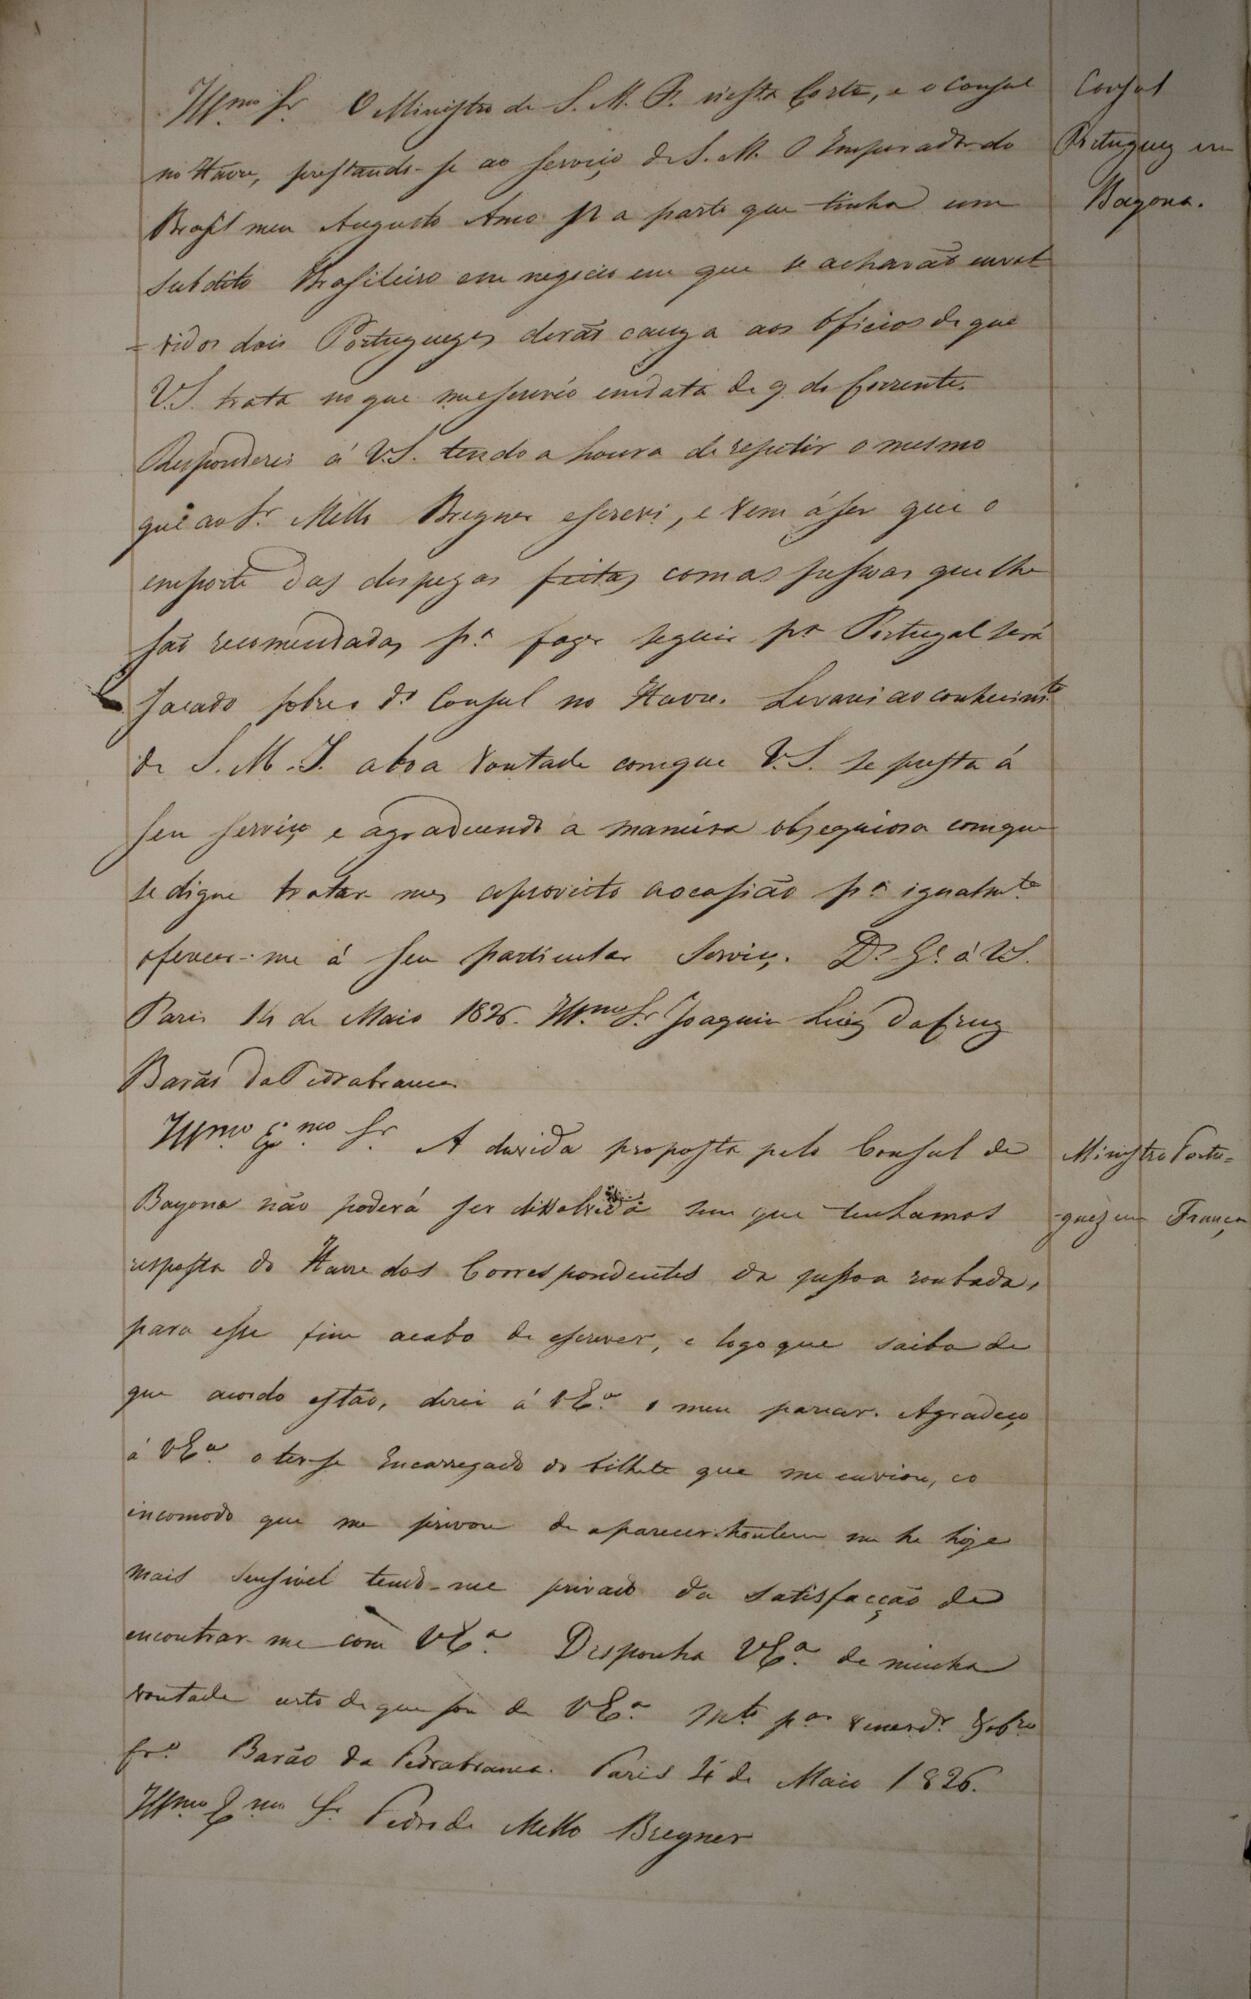 Illmo Sr. O Ministro de S. M. F. nesta Corte, e o Consul
no Havre, prestando-se ao serviço de S. M. O Imperador do
Brasil meu Augusto Amo pª a parte que tinha um
subdito Brasileiro em negocio em que se achavão envol-
=vidos dois Portuguezes derão cauza aos oficios de que
V.S. trata no que me escrevêo em data de 9 do Corrente.
Responderei á V.S. tendo a honra de repetir o mesmo
que ao Sr. Mello Breyner escrevi, e vem á ser que o
emporte das despezas feitas com as pessoas que lhe
são recomendadas pª fazer seguir pª Portugal será
sacado sobre o do Consul no Havre. Levarei ao conhecimto
de S. M. I. a boa vontade com que V.S. se presta á
seu serviço e agradecendo a maneira obzequiosa com que
se digne tratar-me, aproveito a ocasião pª igualmte
oferecer-me á seu particular Serviço. Ds. Ge. á V.S.
Paris 14 de Maio 1826. Illmo Sr. Joaquim Luiz da Cruz
Barão da Pedrabranca
Consul
Portuguez em
Bayona.
Illmo Exmo Sr. A duvida proposta pelo Consul de
Bayona não poderá ser dissolvida sem que tenhamos
resposta do Havre dos Correspondentes da pessoa roubada,
para esse fim acabo de escrever, e logo que saiba de
que acordo estão, direi á VEª o meu parecer. Agradeço
á VEª o ter-se encarregado do bilhete que me enviou, e o
incomodo que me privou de aparecer hontem me he hoje
mais sensivel tendo-me privado da satisfacção de
encontrar-me com VEª. Desponha VEª de minha
vontade certo de que sou de VEª Mto pªr venerdr e obro
Cro Barão da Pedrabranca. Paris 4 de Maio 1826.
Illmo Exmo Sr Pedro de Mello Breyner
Ministro Portu=
-guez em França